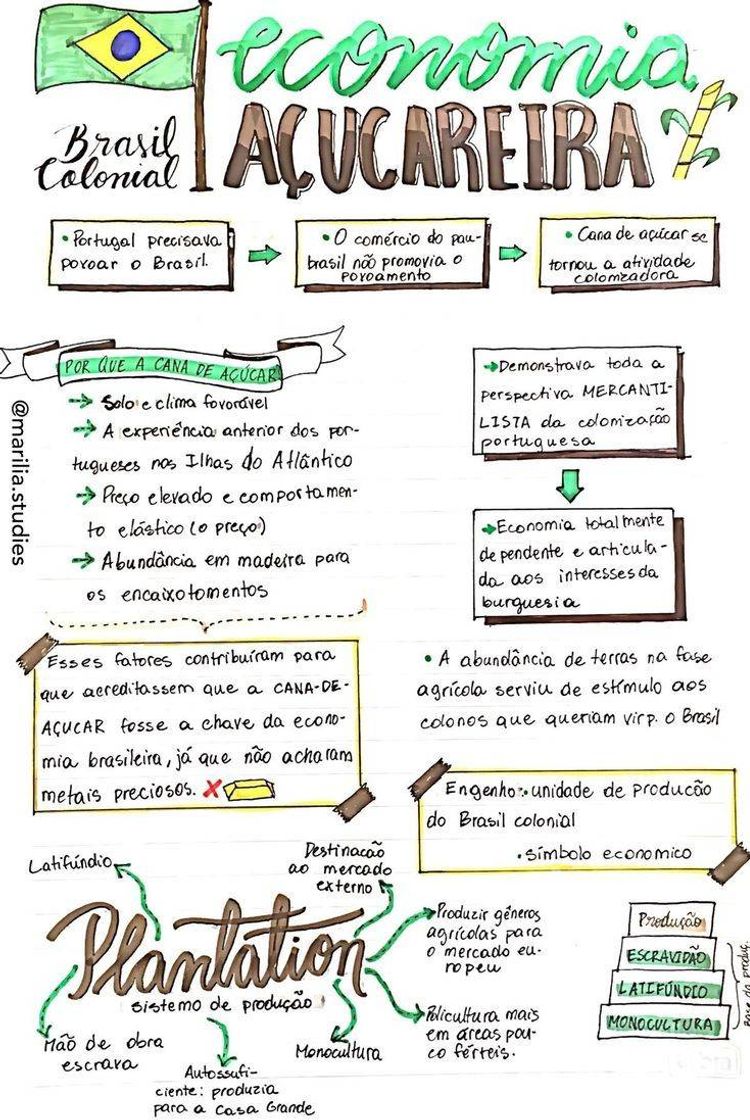 economia
AÇUCAREIRA
Brasil
Colonial
• Portugal precisava
povoar o Brasil.
• O comércio do pau-
brasil não promovia o
povoamento
• Cana de açúcar se
tornou a atividade
colonizadora
POR QUE A CANA DE AÇÚCAR
→ Solo e clima favorável
→ A experiência anterior dos por-
tugueses nas Ilhas do Atlântico
→ Preço elevado e comportamen-
to elástico (o preço)
→ Abundância em madeira para
os encaixotamentos
@marilia.studies
→ Demonstrava toda a
perspectiva MERCANTI-
LISTA da colonização
portuguesa
→ Economia totalmente
dependente e articula-
da aos interesses da
burguesia
Esses fatores contribuíram para
que acreditassem que a CANA-DE-
AÇUCAR fosse a chave da econo-
mia brasileira, já que não acharam
metais preciosos.
• A abundância de terras na fase
agrícola serviu de estímulo aos
colonos que queriam vir p. o Brasil
Engenho: unidade de produção
do Brasil colonial
• símbolo economico
Latifúndio
Destinação
ao mercado
externo
Plantation
sistema de produção
Produzir gêneros
agrícolas para
o mercado eu-
ropeu
Policultura mais
em áreas pou-
co férteis.
Mão de obra
escrava
Autossufi-
ciente: produzia
para a Casa Grande
Monocultura
Produção
ESCRAVIDÃO
LATIFÚNDIO
MONOCULTURA
Base da produç.